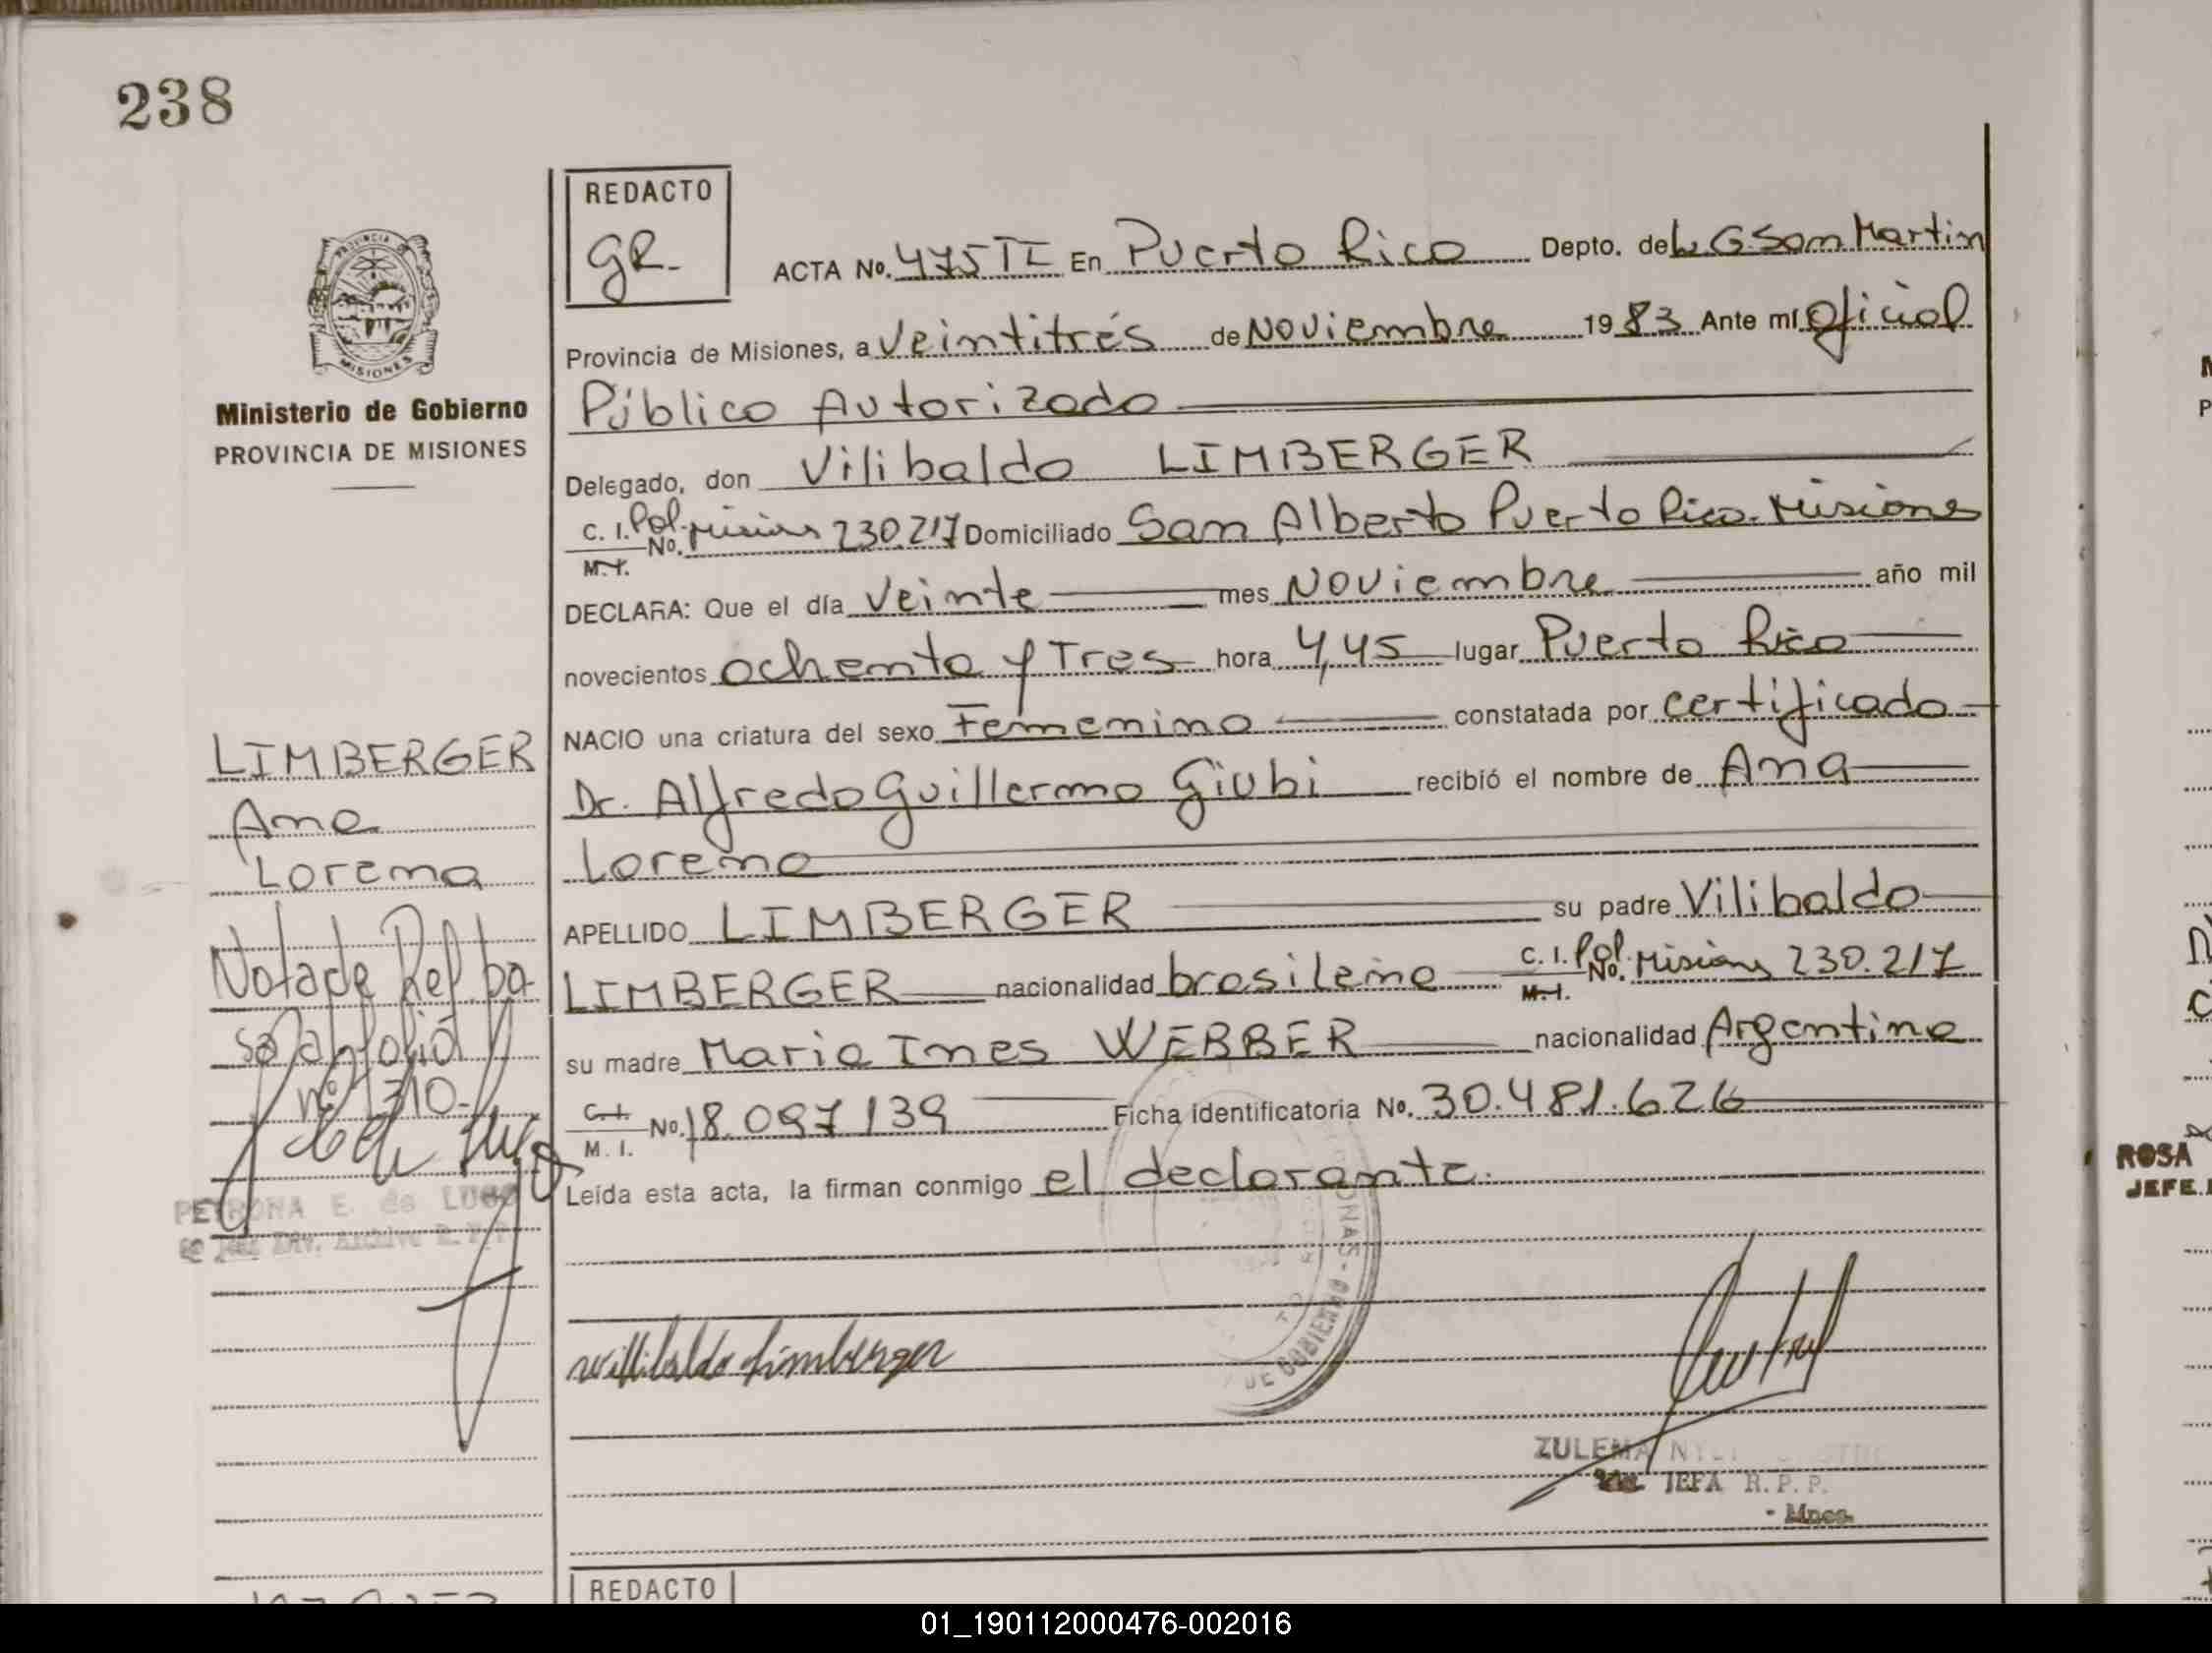 238
REDACTO
GR.
ACTA No. 475 TI En Puerto Rico Depto. de L. G San Martin
Provincia de Misiones, a Veintitrés de Noviembre 1983 Ante mí Oficial
Público Autorizado
Delegado, don Vilibaldo LIMBERGER
C. I. Pol. Misiones
M. I. No. 230.217 Domiciliado San Alberto Puerto Rico. Misiones
DECLARA: Que el día Veinte mes Noviembre año mil
novecientos ochenta y Tres hora 4,45 lugar Puerto Rico
NACIO una criatura del sexo Femenino constatada por certificado
Dr. Alfredo Guillermo Giubi recibió el nombre de Ana
Lorena
APELLIDO LIMBERGER su padre Vilibaldo
LIMBERGER nacionalidad brasileña C. I. Pol. Misiones
M. I. No. 230.217
su madre Maria Ines WEBBER nacionalidad Argentina
C. I.
M. I. No. 18.097139 Ficha identificatoria No. 30.481.626
Leída esta acta, la firman conmigo el declarante.
willibaldo Limberger
DE GOBIERNO
ZULEMA
JEFA R. P. P.
- Mnes.
PROVINCIA DE
MISIONES
Ministerio de Gobierno
PROVINCIA DE MISIONES
LIMBERGER
Ana
Lorena
Nota de Ref. pa-
sa al folio
nº 310-
PETRONA E. de LUGO
REDACTO
ROSA
JEFE
01_190112000476-002016